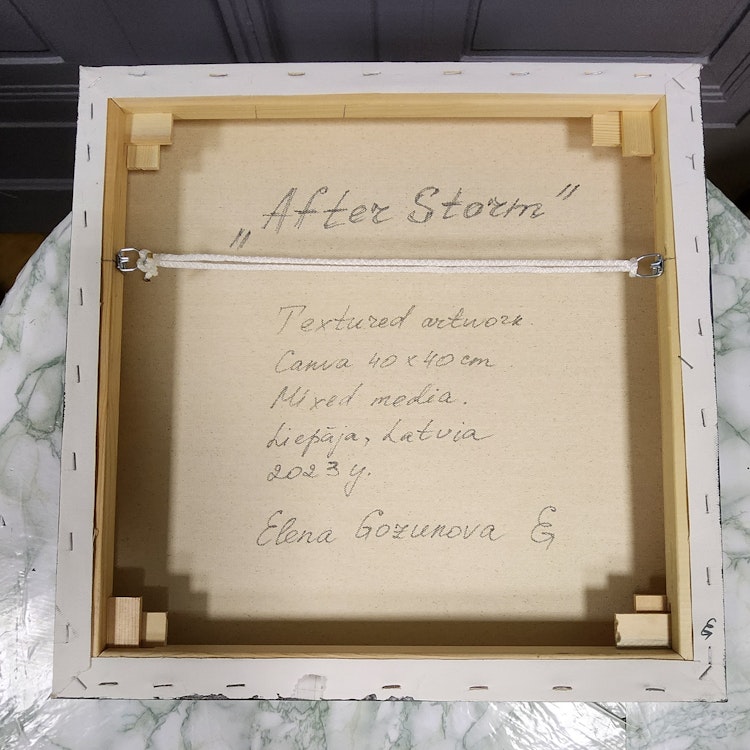 „After Storm”
Textured artwork.
Canva 40x40cm
Mixed media.
Liepāja, Latvia
2023 y.
Elena Gozunova